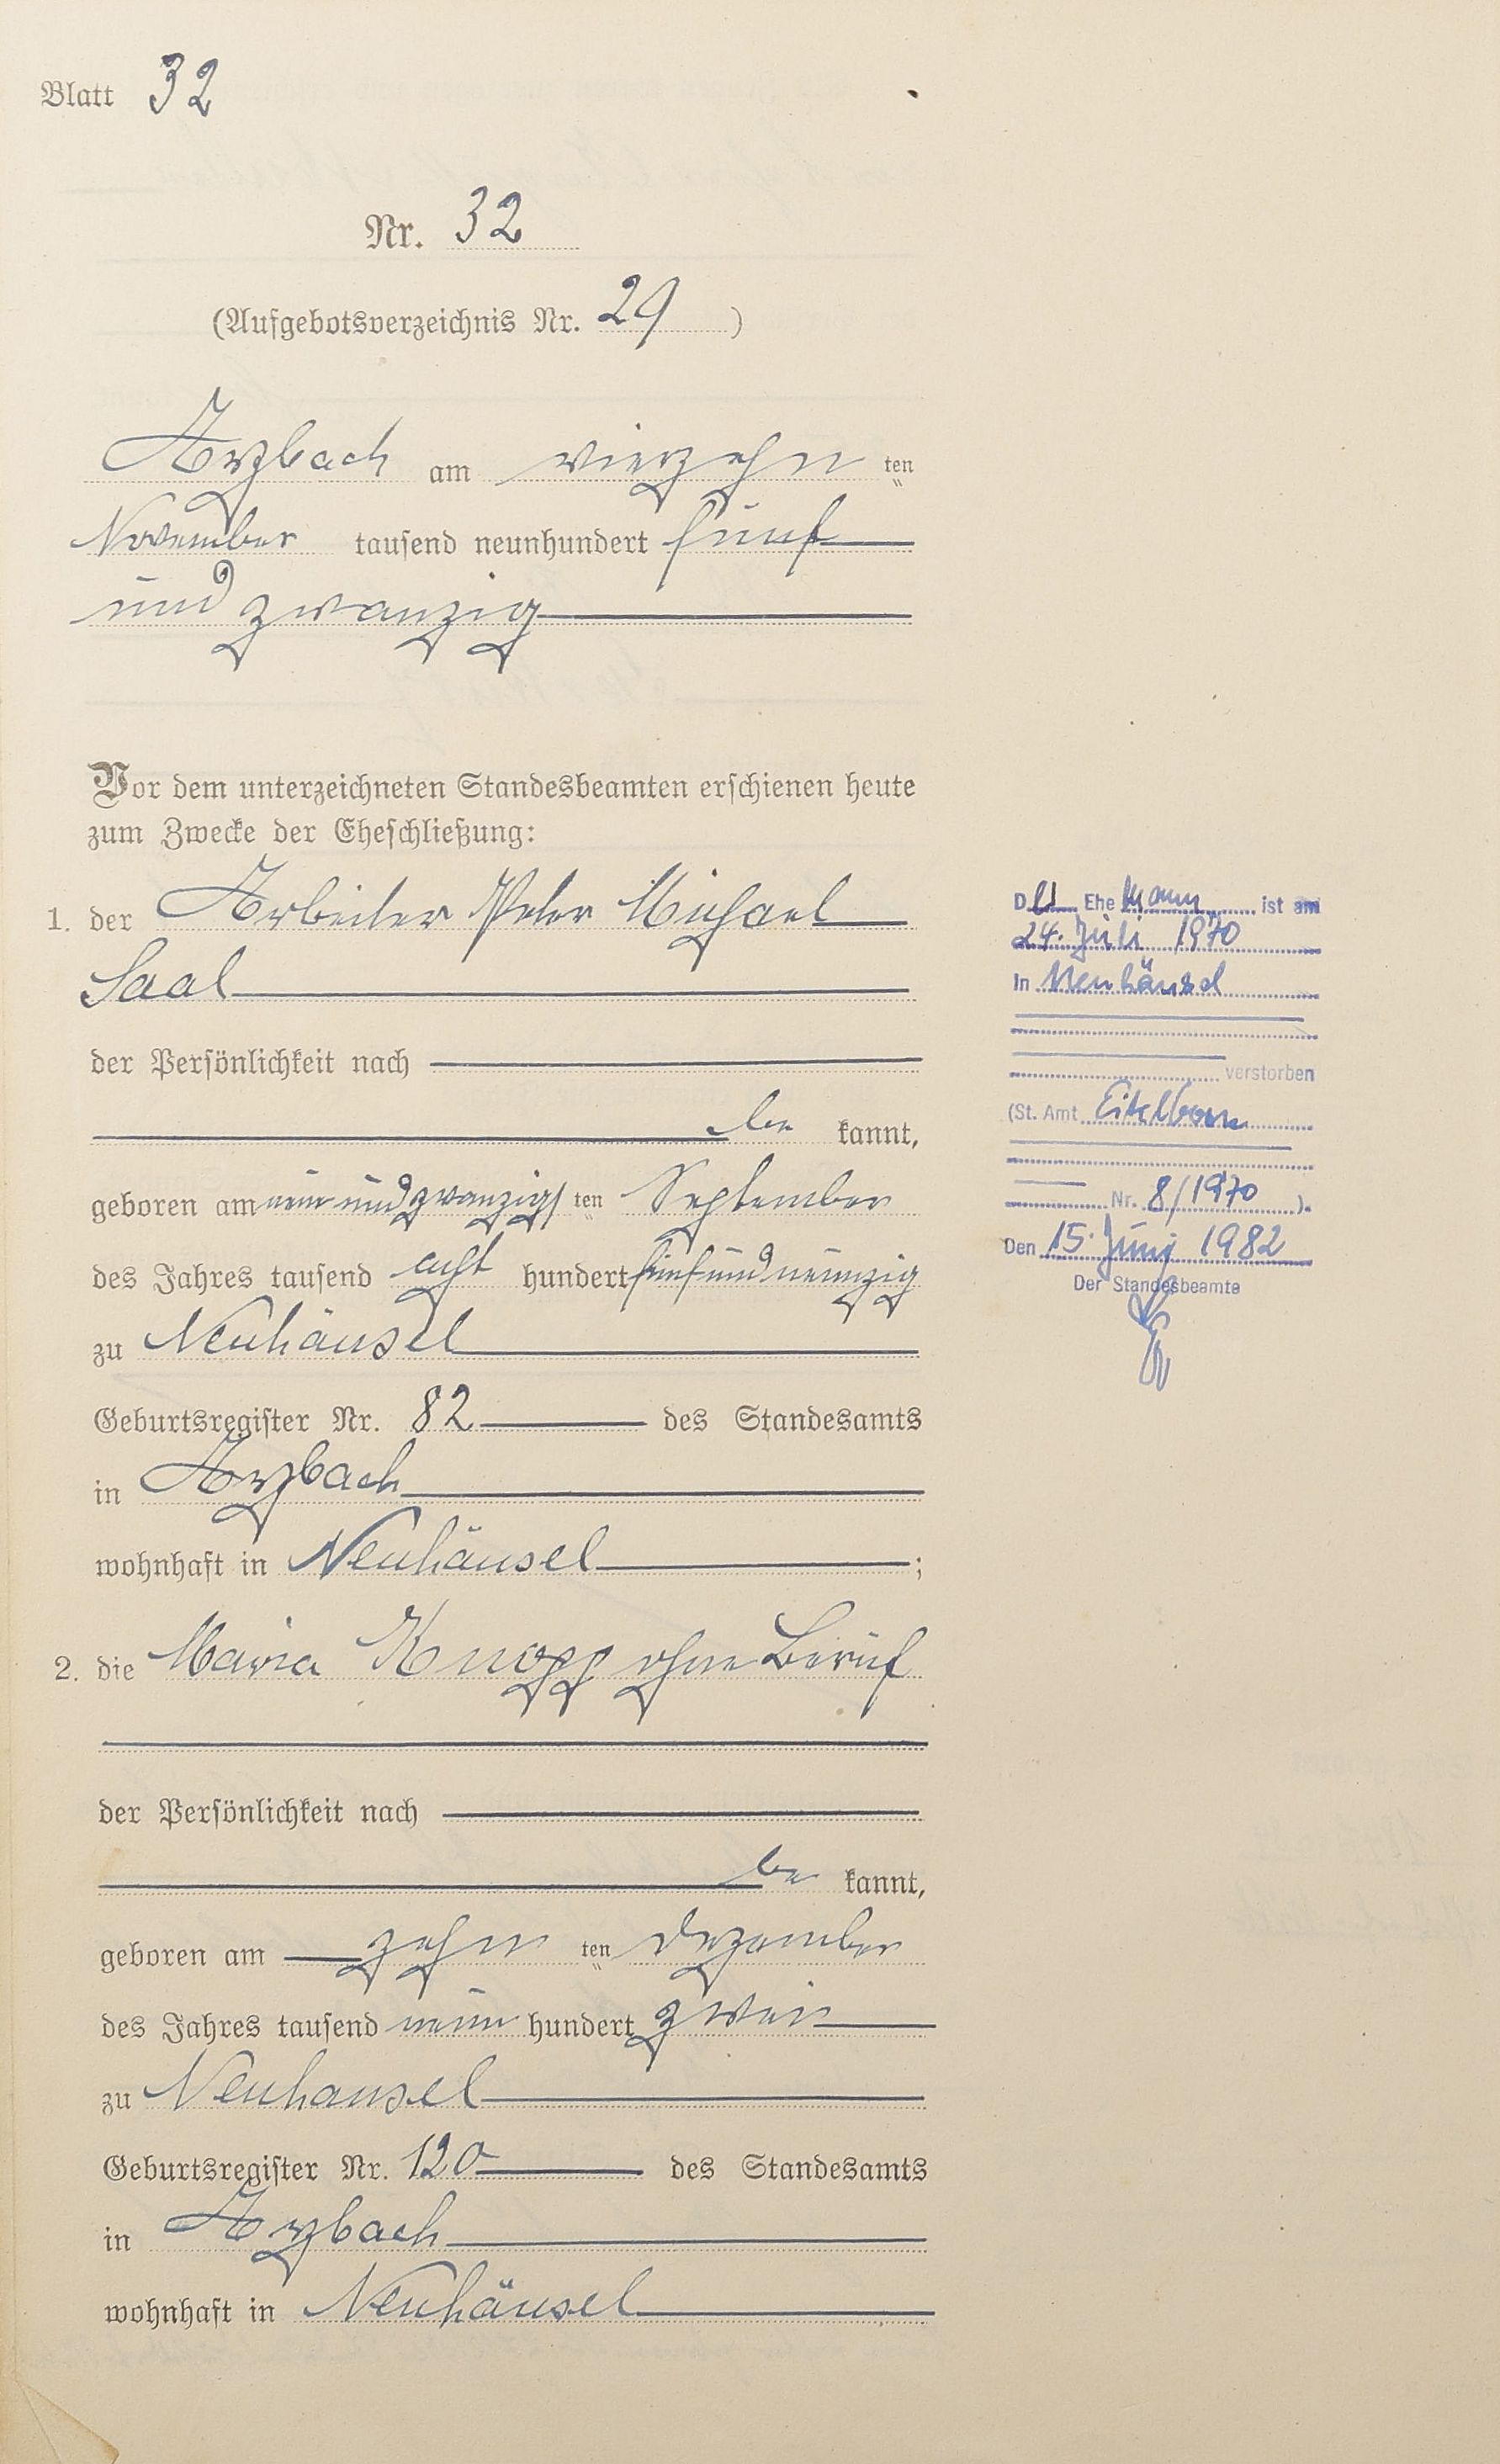 Blatt 32
Nr. 32
(Aufgebotsverzeichnis Nr. 29)
Arzbach am vierzehn ten
November tausend neunhundert fünf
und zwanzig
Vor dem unterzeichneten Standesbeamten erschienen heute
zum Zwecke der Eheschließung:
1. der Arbeiter Peter Michael
Saal
der Persönlichkeit nach
be kannt,
geboren am neun und zwanzigs ten September
des Jahres tausend acht hundert fünf und neunzig
zu Neuhäusel
Geburtsregister Nr. 82 des Standesamts
in Arzbach
wohnhaft in Neuhäusel ;
2. die Maria Knopp ohne Beruf
der Persönlichkeit nach
be kannt,
geboren am zehn ten Dezember
des Jahres tausend neun hundert zwei
zu Neuhausel
Geburtsregister Nr. 120 des Standesamts
in Arzbach
wohnhaft in Neuhäusel
Der Ehemann ist am
24. Juli 1970
in Neuhäusel
verstorben
(St. Amt Eitelborn
Nr. 8/1970 ).
Den 15. Juni 1982
Der Standesbeamte